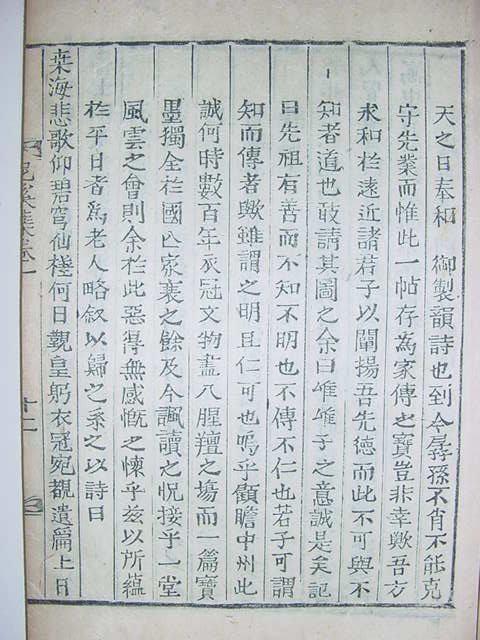 天之日奉和 御製韻詩也到今孱孫不肖不能克
守先業而惟此一帖存為家傳之寶豈非幸歟吾方
求和於遠近諸君子以闡揚吾先德而此不可與不
知者道也敢請其圖之余曰唯唯子之意誠是矣記
曰先祖有善而不知不明也不傳不仁也若子可謂
知而傳者歟雖謂之明且仁可也嗚乎顧瞻中州此
誠何時數百年衣冠文物盡入腥羶之場而一篇寶
墨獨全於國亡家喪之餘及今諷讀之怳接乎一堂
風雲之會則余於此惡得無感慨之懷乎玆以所蘊
於平日者為老人略叙以歸之系之以詩曰
桒海悲歌仰碧穹仙棧何日覲皇躬衣冠宛覩遺篇上日
集卷一
十二